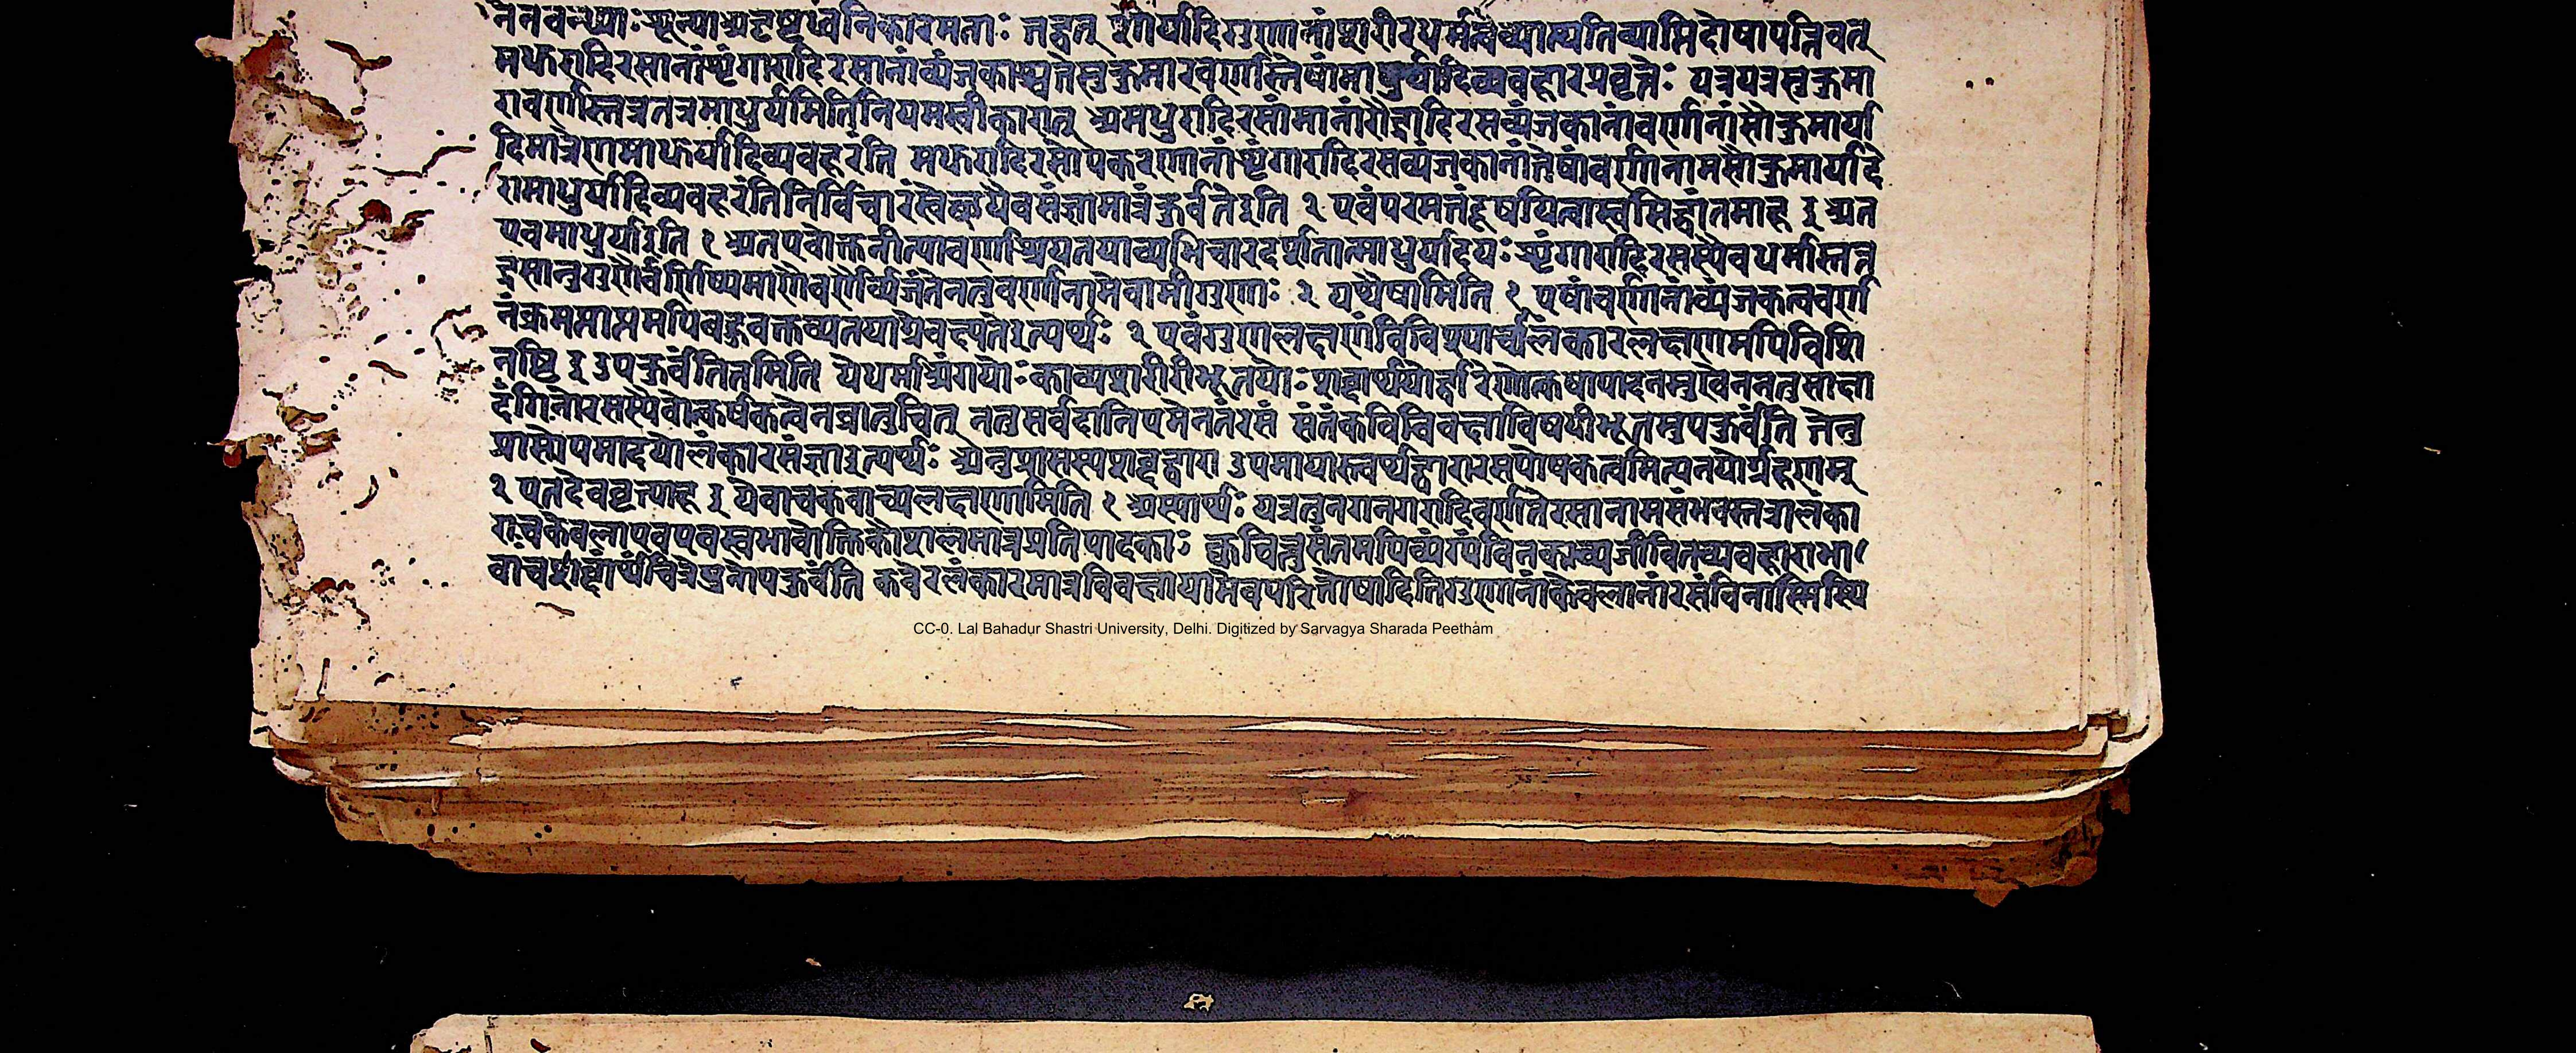 नेनवन्ध्याः शून्याअदृष्टध्वनिकारमताः तद्वत् शौर्यादिगुणानांशरीरधर्मत्वेव्याप्त्यतिव्याप्तिदोषापत्तिवत्
मधुरादिरसानांशृंगारादिरसानांव्यंजकाश्चतेसुकुमारवर्णास्तेषांमाधुर्यादिव्यवहारप्रवृत्तेः यत्रयत्रसुकुमा
रावर्णास्तत्रतत्रमाधुर्यमितिनियमस्वीकारात् अमधुरादिरसांमानांरौद्रादिरसव्यंजकानांवर्णानांसौकुमार्या
दिमात्रेणमाधुर्यादिव्यवहरंति मधुरादिरसोपकरणानांशृंगारादिरसव्यंजकानांतेषांवर्णानामसौकुमार्यादे
रमाधुर्यादिव्यवहरंतिनिर्विचारंस्वेच्छयैवसंज्ञामात्रंकुर्वतेइति २ एवंपरमतंदूषयित्वास्वसिद्धांतमाह ३ अत
एवमाधुर्याइति १ अतएवोक्तनीत्यावर्णाश्रयतयाव्यभिचारदर्शनात्माधुर्यादयः शृंगारादिरसस्यैवधर्मास्तत्त
द्रसानुगुणैर्वर्णिष्यमाणैवर्णैर्व्यंजंतेनतुवर्णानामेवामीगुणाः २ यथैषामिति १ एषांवर्णानांव्यंजकत्ववर्ण
नंक्रमप्राप्तमपिबहुवक्तव्यतयाग्रेवक्ष्यतेइत्यर्थः २ एवंगुणलक्षणंविविच्यार्थालंकारलक्षणमपिविशि
नष्टि ३ उपकुर्वंतितमिति येधर्माअंगयोः काव्यशरीरीभूतयोः शब्दार्थयोर्द्वारेणोत्कर्षापादनमुखेननतुसाक्षा
दंगिनोरसस्यैवोत्कर्षकत्वेनजातुचित् नतुसर्वदानियमेनतंरसं संतंकविविवक्षाविषयीभूतमुपकुर्वंति तेनु
प्रासोपमादयोलंकारसंज्ञाइत्यर्थः अनुप्रासस्यशब्दद्वारा उपमायास्त्वर्थद्वारारसपोषकत्वमित्यनयोर्ग्रहणम्
२ एतदेववृत्त्याह ३ येवाचकवाच्यलक्षणामिति १ अस्यार्थः यत्रतुनगनगरादिवर्णनेरसानामसंभवस्तत्रालंका
राःकेवलाएवएवस्वभावोक्तिकौशलमात्रप्रतिपादकाः क्वचित्तुसंतमपिव्यंग्यंविनकाव्यजीवितव्यवहाराभा
वांचशोद्धांर्थचित्रेषुनोपकुर्वंति कवेरलंकारमात्रविवक्षायामेवपरितोषादितिगुणानांकेवलानांरसंविनास्मिस्थि
CC-0. Lal Bahadur Shastri University, Delhi. Digitized by Sarvagya Sharada Peetham